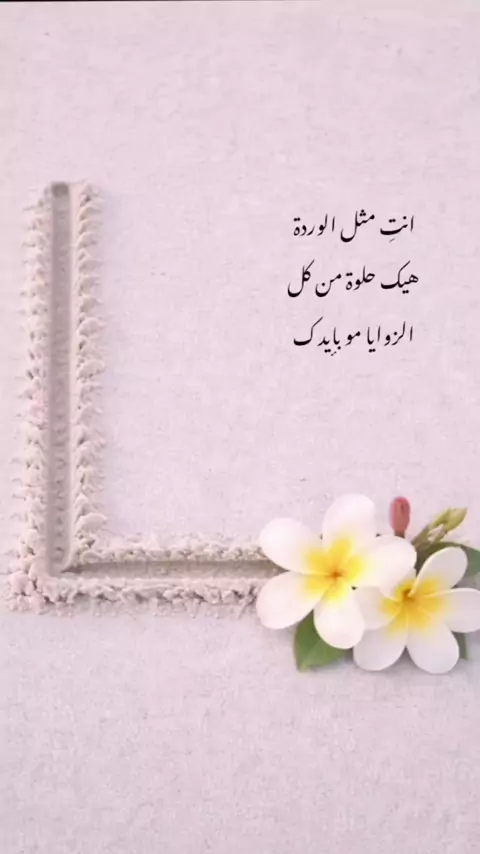 انتِ مثل الوردة
هيك حلوة من كل
الزوايا مو بإيدك